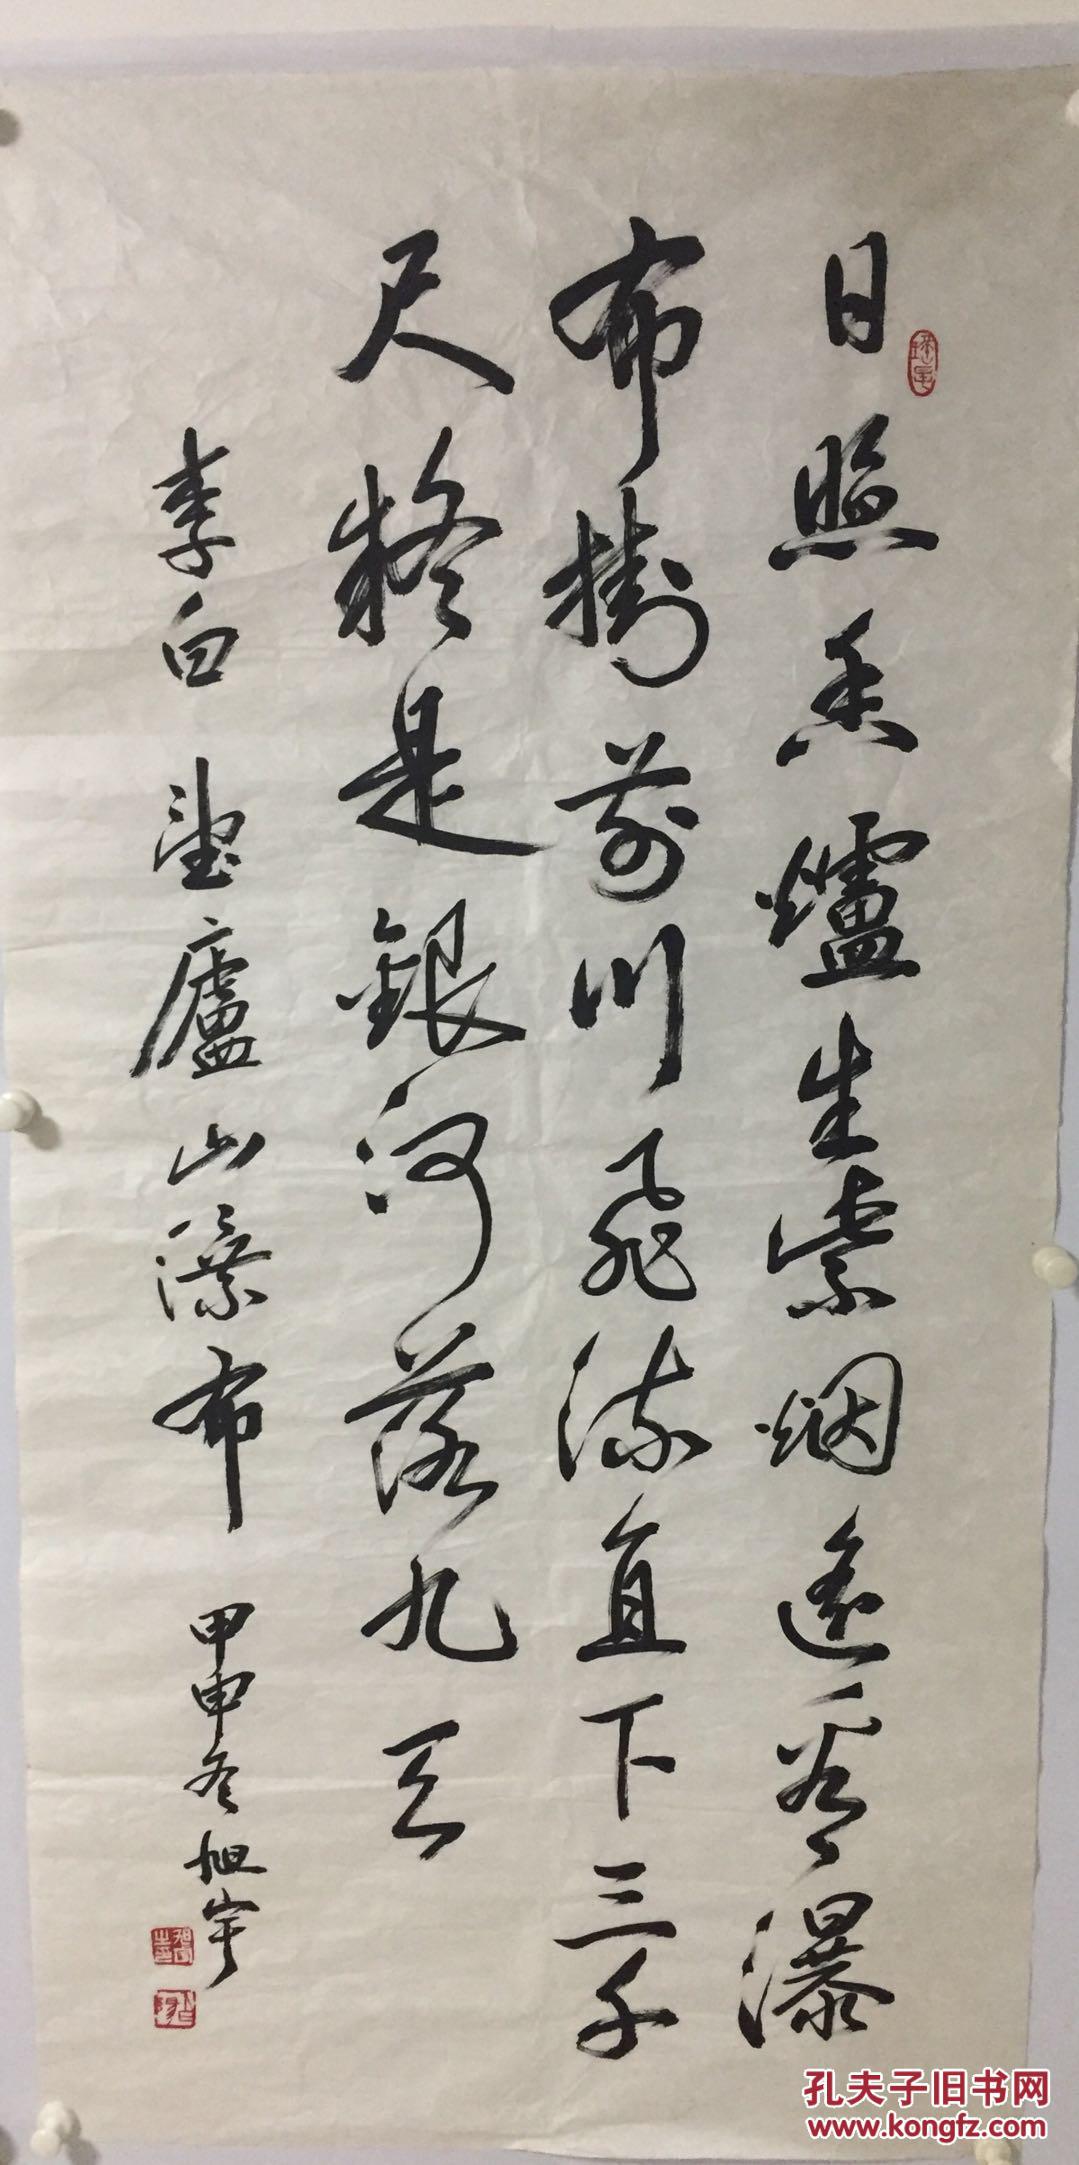 日照香爐生紫烟遥看瀑
布掛前川飛流直下三千
尺疑是銀河落九天
李白 望廬山瀑布 甲申冬旭宇
孔夫子旧书网
www.kongfz.com